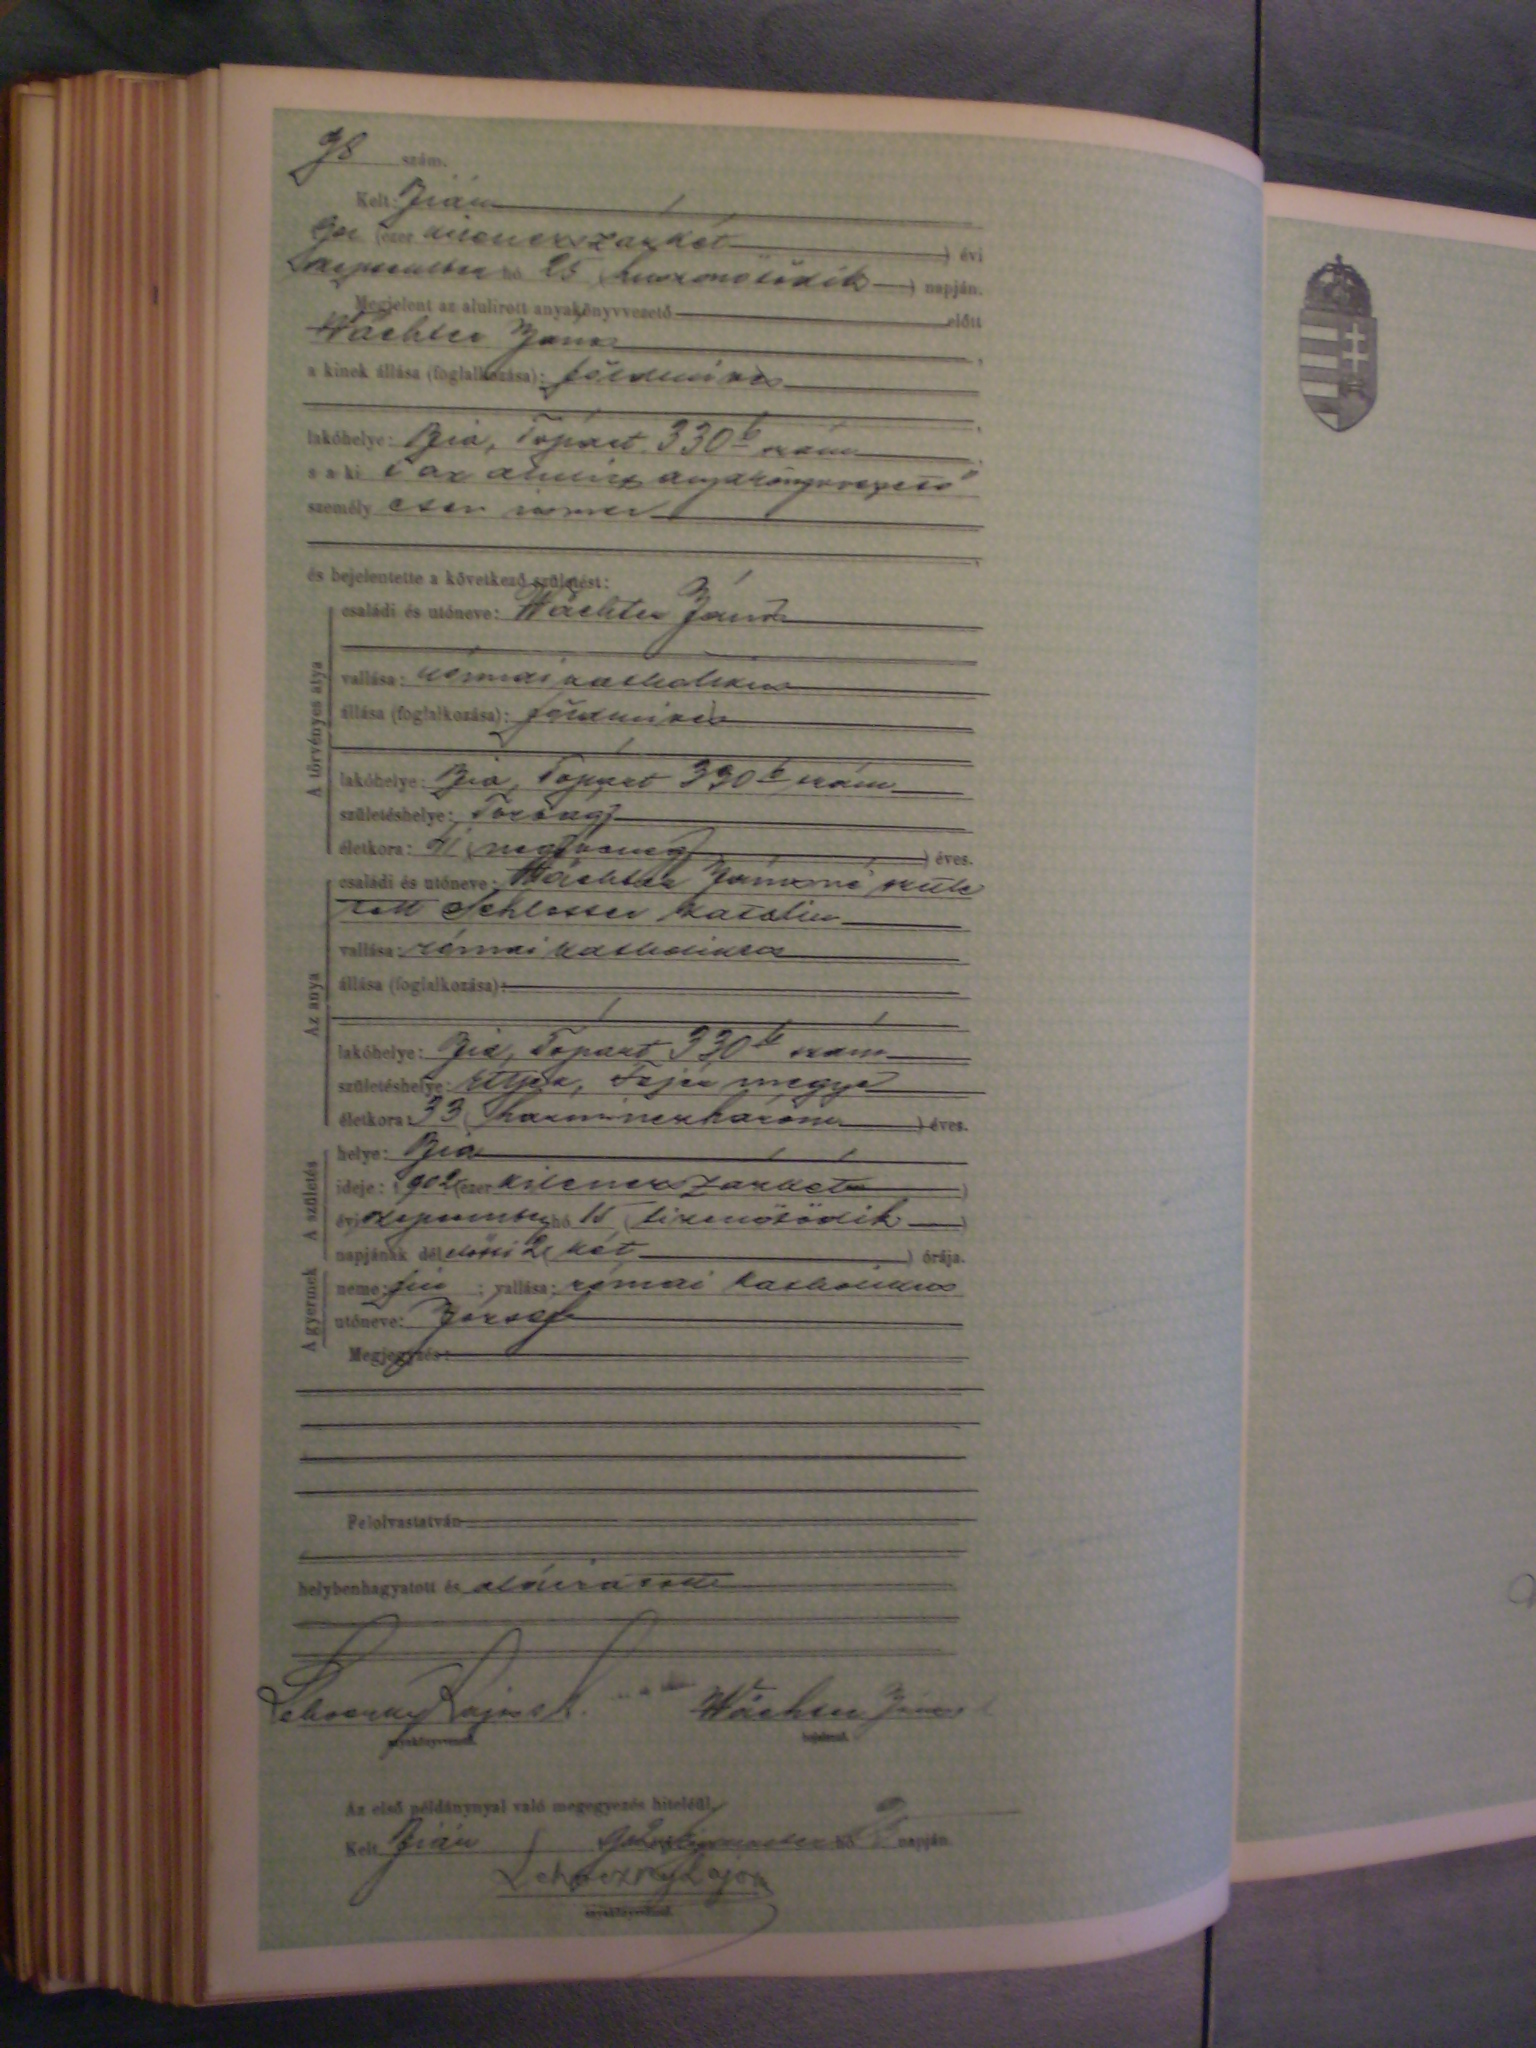 98 szám.
Kelt: Bián
902 (ezer kilenczszázkét) évi
szeptember hó 25 (huszonötödik) napján.
Megjelent az alulirott anyakönyvvezető előtt
Wächter János
a kinek állása (foglalkozása): földmíves
lakóhelye: Bia, Tópart 330 b szám
s a ki t az alulirt anyakönyvvezető
személyesen ismer
és bejelentette a következő születést:
A törvényes atya
családi és utóneve: Wächter János
vallása: római katholikus
állása (foglalkozása): földmíves
lakóhelye: Bia, Tópart 330 b szám
születéshelye: Torbágy
életkora: 41 (negyvenegy) éves.
Az anya
családi és utóneve: Wächter Jánosné szüle
tett Schlosser Katalin
vallása: római katholikus
állása (foglalkozása):
lakóhelye: Bia, Tópart 330 b szám
születéshelye: Etyek, Fejér megye
életkora: 33 (harminczhárom) éves.
A születés
helye: Bia
ideje: 1902 (ezer kilenczszázkét)
évi szeptember hó 15 (tizenötödik)
napjának délelőtti 2 (két) órája.
A gyermek
neme: fiú; vallása: római katholikus
utóneve: József
Megjegyzés:
Felolvastatván
helybenhagyatott és aláiratott
Lehoczky Lajos Wächter János
anyakönyvvezető. bejelentő.
Az első példánynyal való megegyezés hiteléül,
Kelt Bián 902 hó napján.
Lehoczky Lajos
anyakönyvvezető.